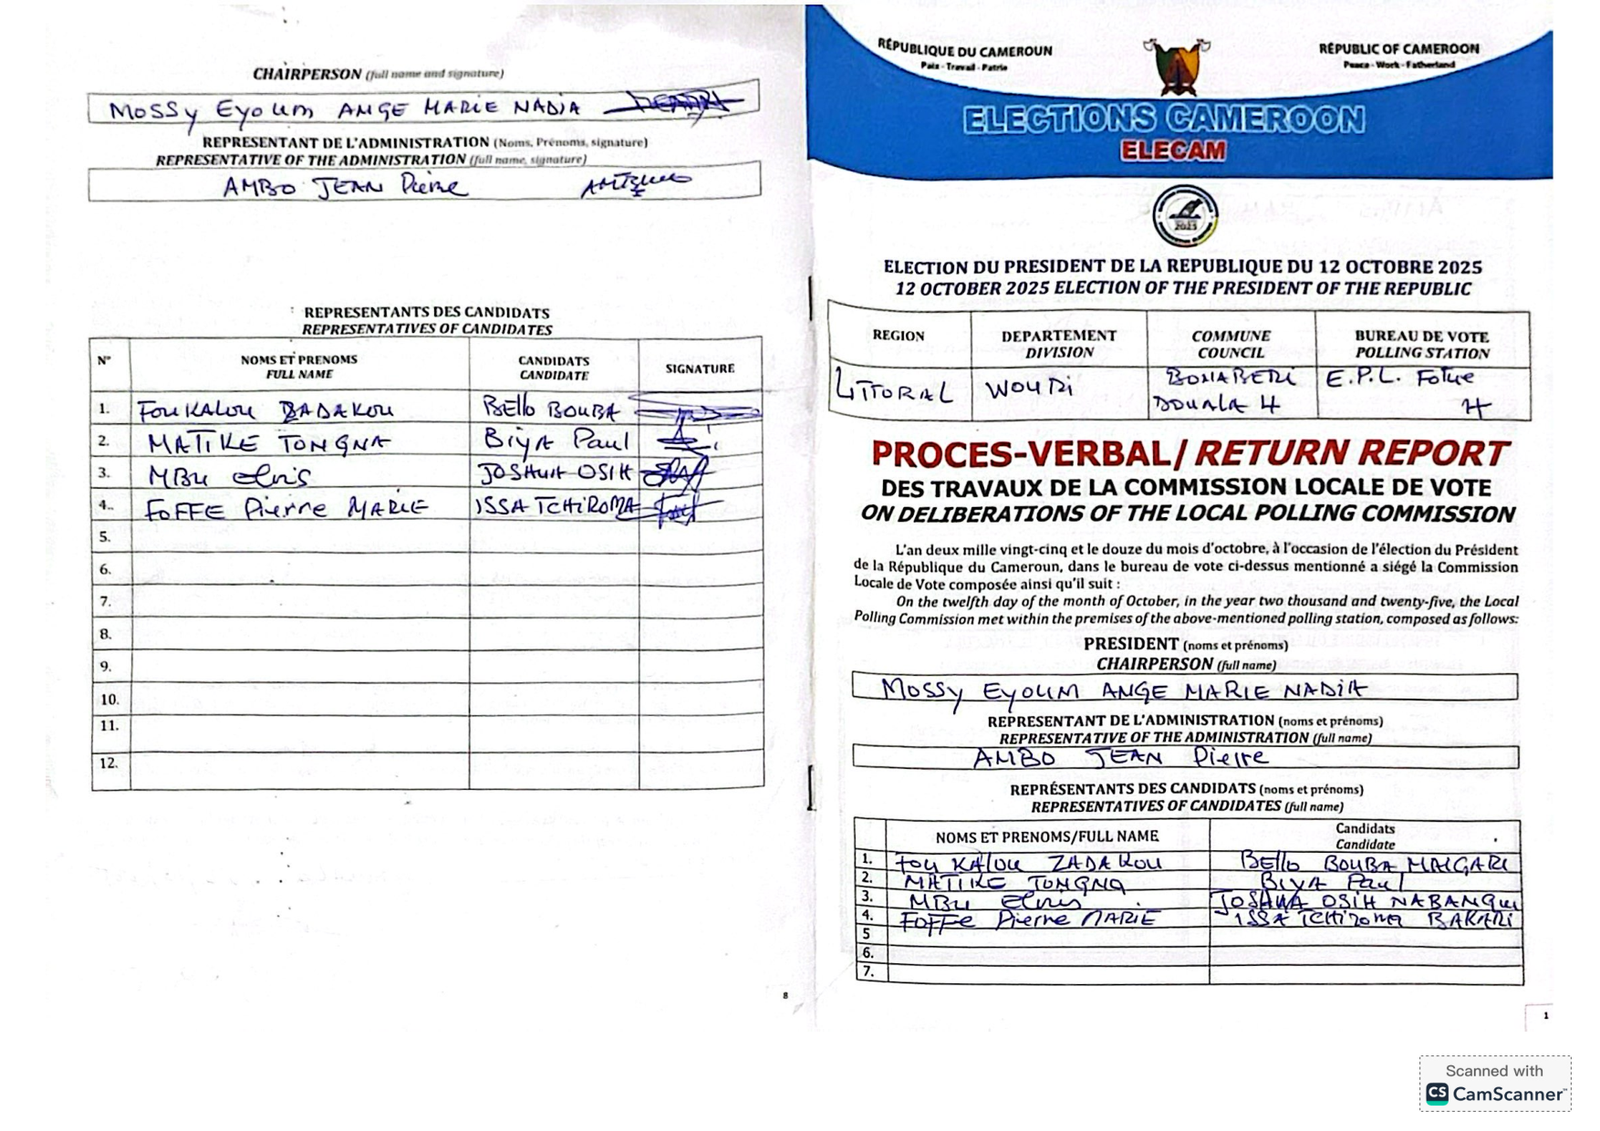 CHAIRPERSON (full name and signature)
MOSSY EYOUM ANGE MARIE NADIA
REPRESENTANT DE L'ADMINISTRATION (Noms, Prénoms, signature)
REPRESENTATIVE OF THE ADMINISTRATION (full name, signature)
AMBO JEAN Pierre
REPRESENTANTS DES CANDIDATS
REPRESENTATIVES OF CANDIDATES
N° NOMS ET PRENOMS FULL NAME CANDIDATS CANDIDATE SIGNATURE
1. FOUKALOU BADAKOU BEllo BOUBA
2. MATIKE TONGNA BiYA Paul
3. MBU Elvis JOSHUA OSIH
4.. FOFFE Pierre MARIE ISSA TCHIROMA
5.
6.
7.
8.
9.
10.
11.
12.
8
RÉPUBLIQUE DU CAMEROUN
Paix - Travail - Patrie
RÉPUBLIC OF CAMEROON
Peace - Work - Fatherland
ELECTIONS CAMEROON
ELECAM
2025
ELECTION DU PRESIDENT DE LA REPUBLIQUE DU 12 OCTOBRE 2025
12 OCTOBER 2025 ELECTION OF THE PRESIDENT OF THE REPUBLIC
REGION DEPARTEMENT DIVISION COMMUNE COUNCIL BUREAU DE VOTE POLLING STATION
LITTORAL WOURI BONABERI DOUALA 4 E.P.L. Fotue H
PROCES-VERBAL/ RETURN REPORT
DES TRAVAUX DE LA COMMISSION LOCALE DE VOTE
ON DELIBERATIONS OF THE LOCAL POLLING COMMISSION
L'an deux mille vingt-cinq et le douze du mois d'octobre, à l'occasion de l'élection du Président
de la République du Cameroun, dans le bureau de vote ci-dessus mentionné a siégé la Commission
Locale de Vote composée ainsi qu'il suit :
On the twelfth day of the month of October, in the year two thousand and twenty-five, the Local
Polling Commission met within the premises of the above-mentioned polling station, composed as follows:
PRESIDENT (noms et prénoms)
CHAIRPERSON (full name)
MOSSY EYOUM ANGE MARIE NADIA
REPRESENTANT DE L'ADMINISTRATION (noms et prénoms)
REPRESENTATIVE OF THE ADMINISTRATION (full name)
AMBO JEAN Pierre
REPRÉSENTANTS DES CANDIDATS (noms et prénoms)
REPRESENTATIVES OF CANDIDATES (full name)
NOMS ET PRENOMS/FULL NAME Candidats Candidate
1. FOU KALOU ZADAKOU BEllo BOUBA MAIGARI
2. MATIKE TONGNA BIYA Paul
3. MBU Elvis JOSHUA OSIH NABANGUI
4. FOFFE Pierre MARIE ISSA TCHIROMA BAKARI
5
6.
7.
1
Scanned with
CS CamScanner